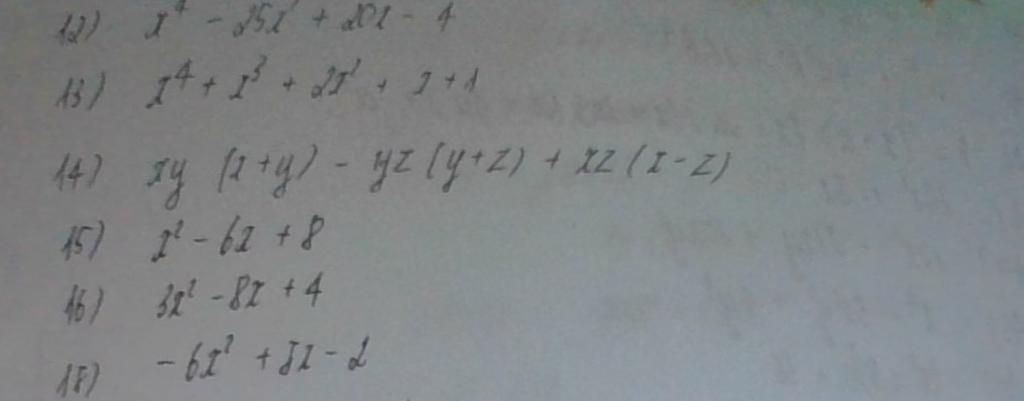 12) x⁴ - 25x² + 20x - 4
13) x⁴ + x³ + 2x² + x + 1
14) xy (x+y) - yz (y+z) + xz (x-z)
15) x² - 6x + 8
16) 3x² - 8x + 4
18) - 6x² + 5x - 2